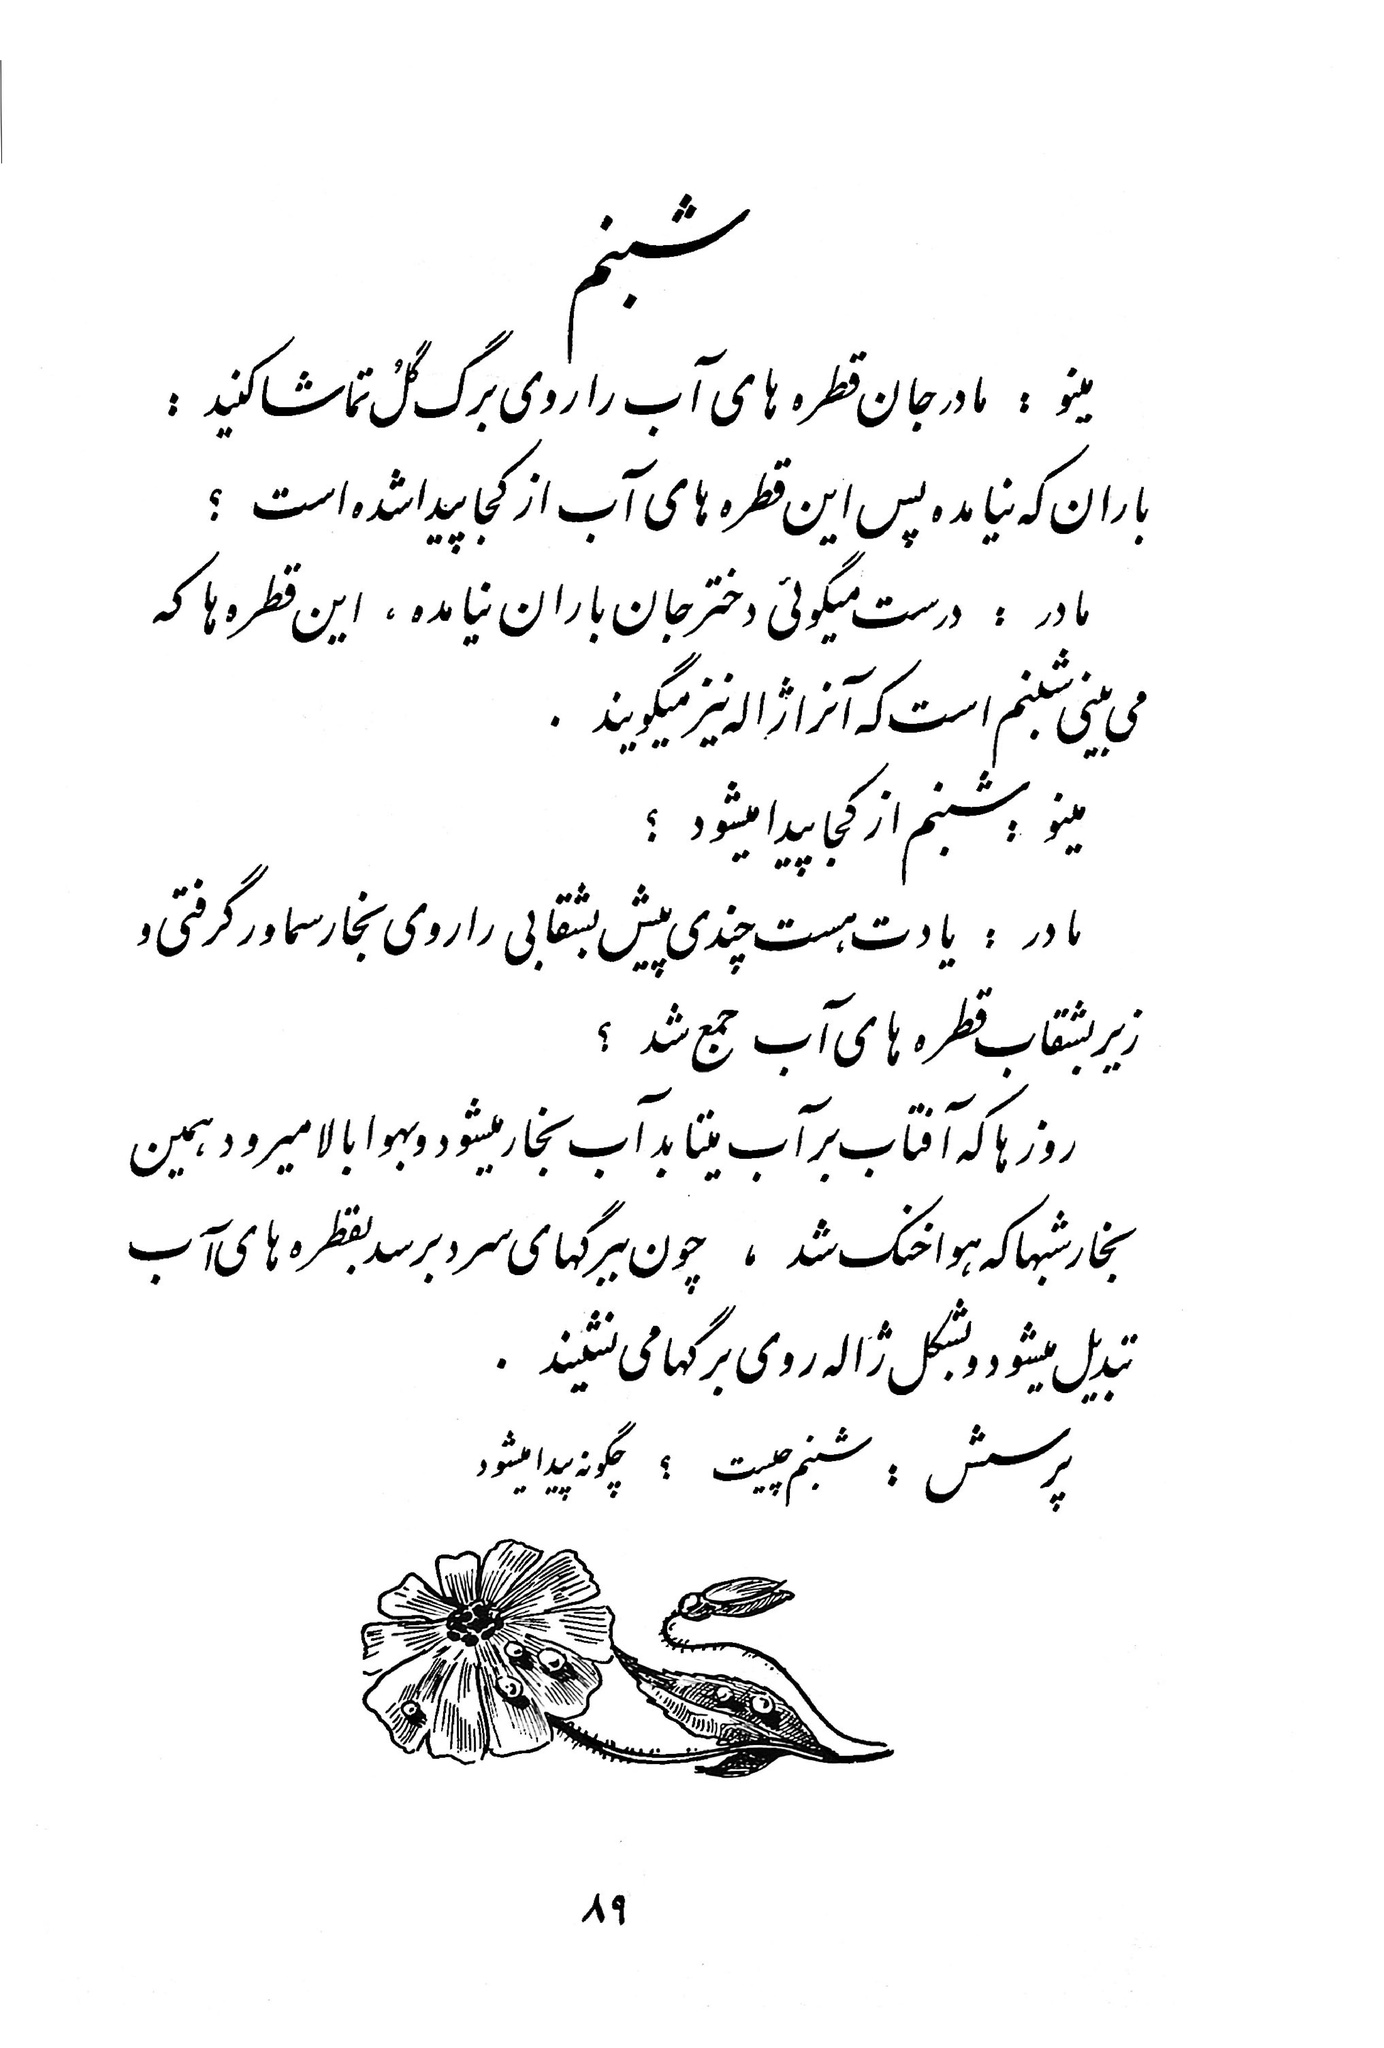 شبنم
مینو : مادر جان قطره های آب را روی برگ گُل تماشا کنید :
باران که نیامده پس این قطره های آب از کجا پیدا شده است ؟
مادر : درست میگوئی دختر جان باران نیامده ، این قطره ها که
می بینی شبنم است که آنرا ژاله نیز میگویند .
مینو : شبنم از کجا پیدا میشود ؟
مادر : یادت هست چندی پیش بشقابی را روی بخار سماور گرفتی و
زیر بشقاب قطره های آب جمع شد ؟
روزها که آفتاب بر آب میتابد آب بخار میشود و بهوا بالا میرود همین
بخار شبها که هوا خنک شد ، چون ببرگهای سرد برسد بقطره های آب
تبدیل میشود و بشکل ژاله روی برگها می نشیند .
پرسش : شبنم چیست ؟ چگونه پیدا میشود
۸۹